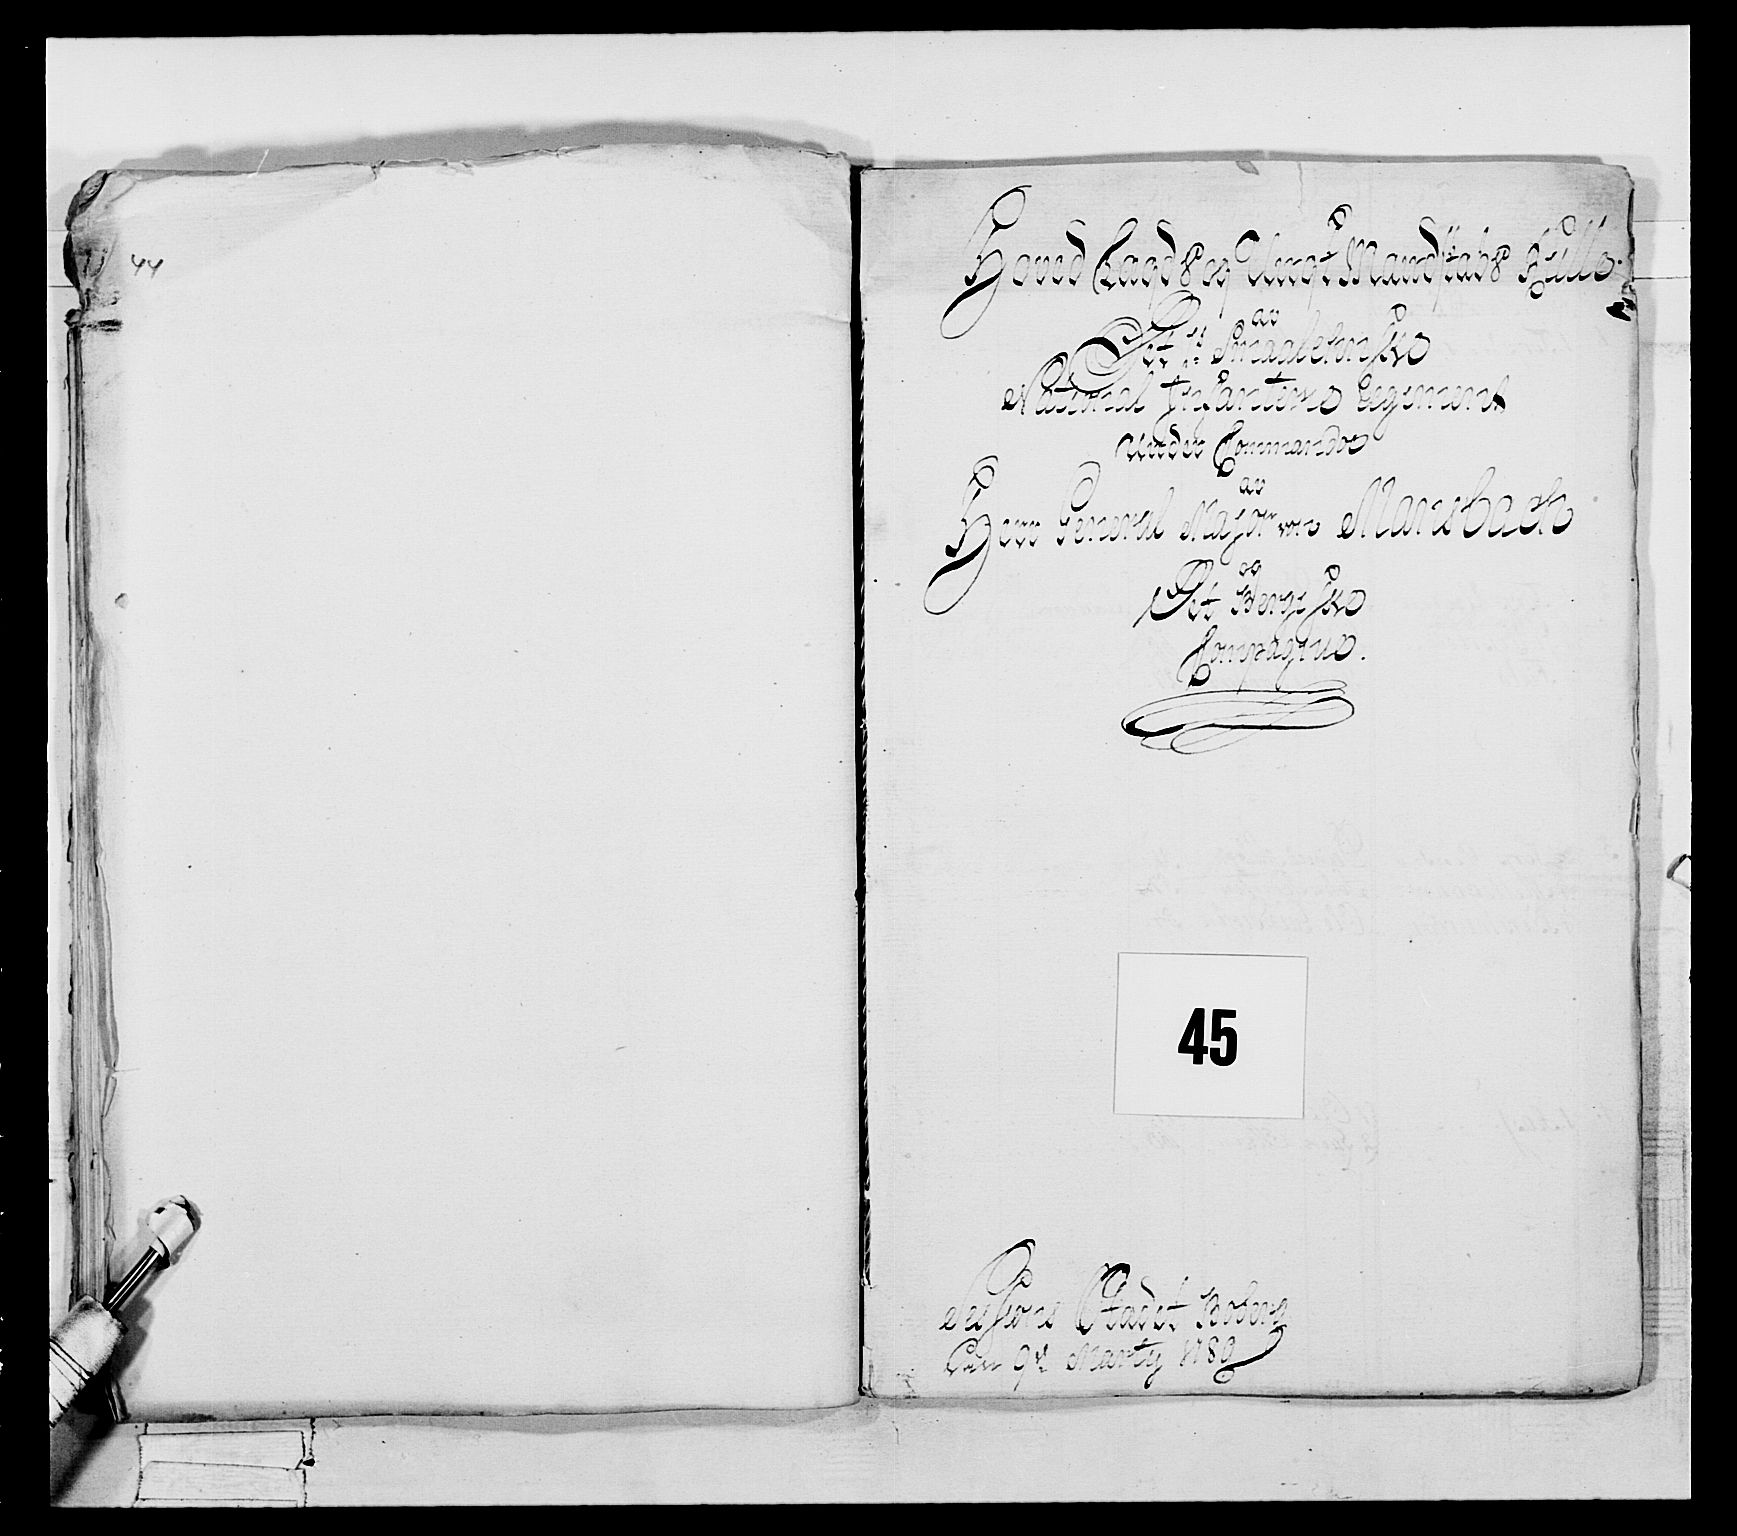 44
Hoved Lægds og Ungt Mandskabs Rulle.
av
Det 2det Smaalenske
National Infanterie Regiment
Under Commando
av
Herr General Major von Mansbach
og
Det Bergske
Compagnie.
45
Sessions Stædet Boberg
Den 9de Marty 1789